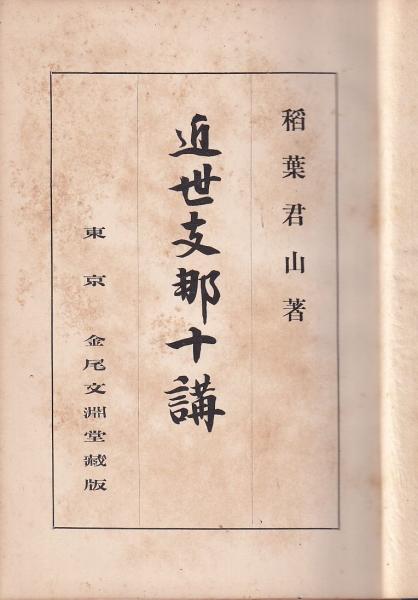 稻葉君山著
近世支那十講
東京 金尾文淵堂藏版